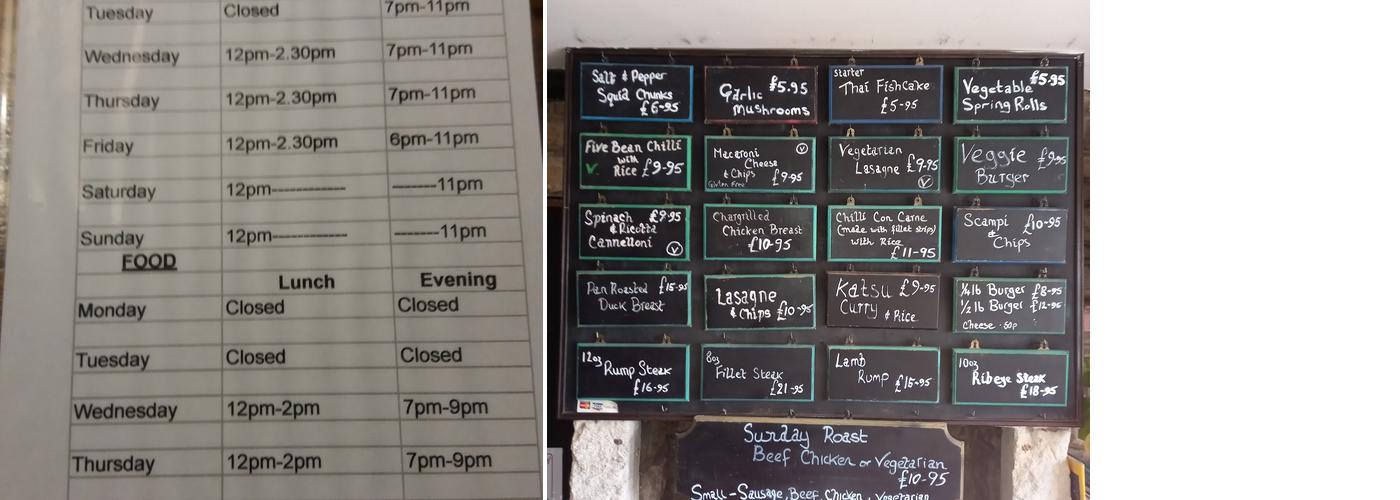 Tuesday Closed 7pm-11pm
Wednesday 12pm-2.30pm 7pm-11pm
Thursday 12pm-2.30pm 7pm-11pm
Friday 12pm-2.30pm 6pm-11pm
Saturday 12pm------------ -------11pm
Sunday 12pm------------ -------11pm
FOOD
Lunch Evening
Monday Closed Closed
Tuesday Closed Closed
Wednesday 12pm-2pm 7pm-9pm
Thursday 12pm-2pm 7pm-9pm
Salt & Pepper
Squid Chunks
£6-95
Garlic £5.95
Mushrooms
Starter
Thai FishCake
£5-95
Vegetable £5.95
Spring Rolls
Five Bean Chilli
with
V. Rice £9-95
Macaroni V
Cheese
& Chips £9.95
Gluten Free
Vegetarian
Lasagne £9-95
V
Veggie £9.95
Burger
Spinach £9.95
& Ricotta
Cannelloni V
Chargrilled
Chicken Breast
£10-95
Chilli Con Carne
(made with fillet strips)
with Rice
£11-95
Scampi £10-95
&
Chips
Pan Roasted £15-95
Duck Breast
Lasagne
& Chips £10-95
Katsu £9-95
Curry & Rice
1/4lb Burger £8-95
1/2lb Burger £12-95
Cheese .50p
12oz
Rump Steak
£16-95
8oz
Fillet Steak
£21-95
Lamb
Rump £15-95
10oz
Ribeye Steak
£18-95
Sunday Roast
Beef Chicken or Vegetarian
£10-95
Small-Sausage, Beef, Chicken, Vegetarian